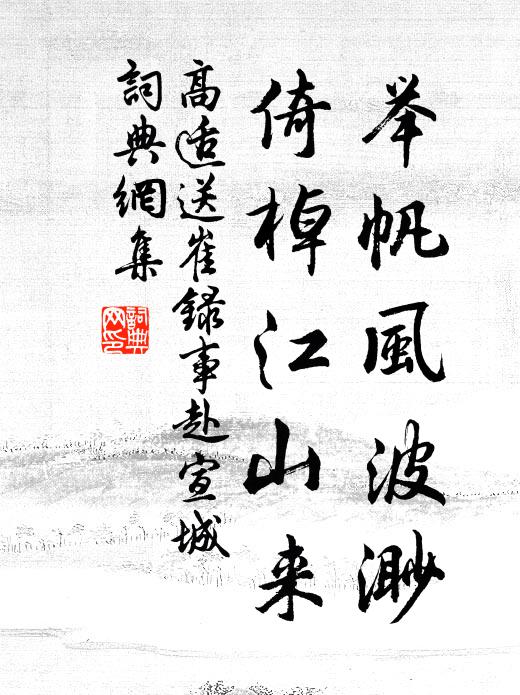 举帆風波渺
倚棹江山来
高适送崔錄事赴宣城
詞典網集
詞典网印